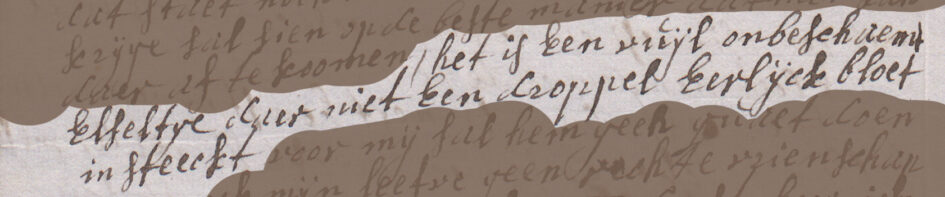 dat staet
krijge sal sien op de beste manier
daer af te koomen, het is een vuijl onbeschaemt
daer niet een droppel eerlijck bloet
in steeckt voor mij sal hem geen quaet doen
mijn leefve geen rechte vrienschap